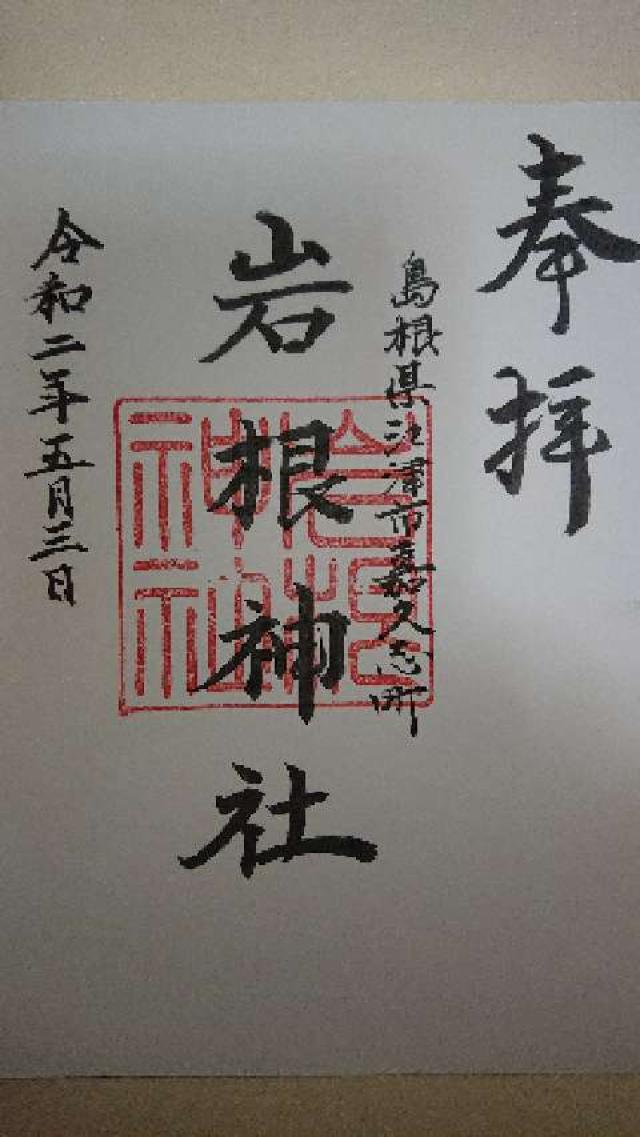 奉拝
島根県江津市嘉久志町
岩根神社
岩根神社
令和二年五月三日